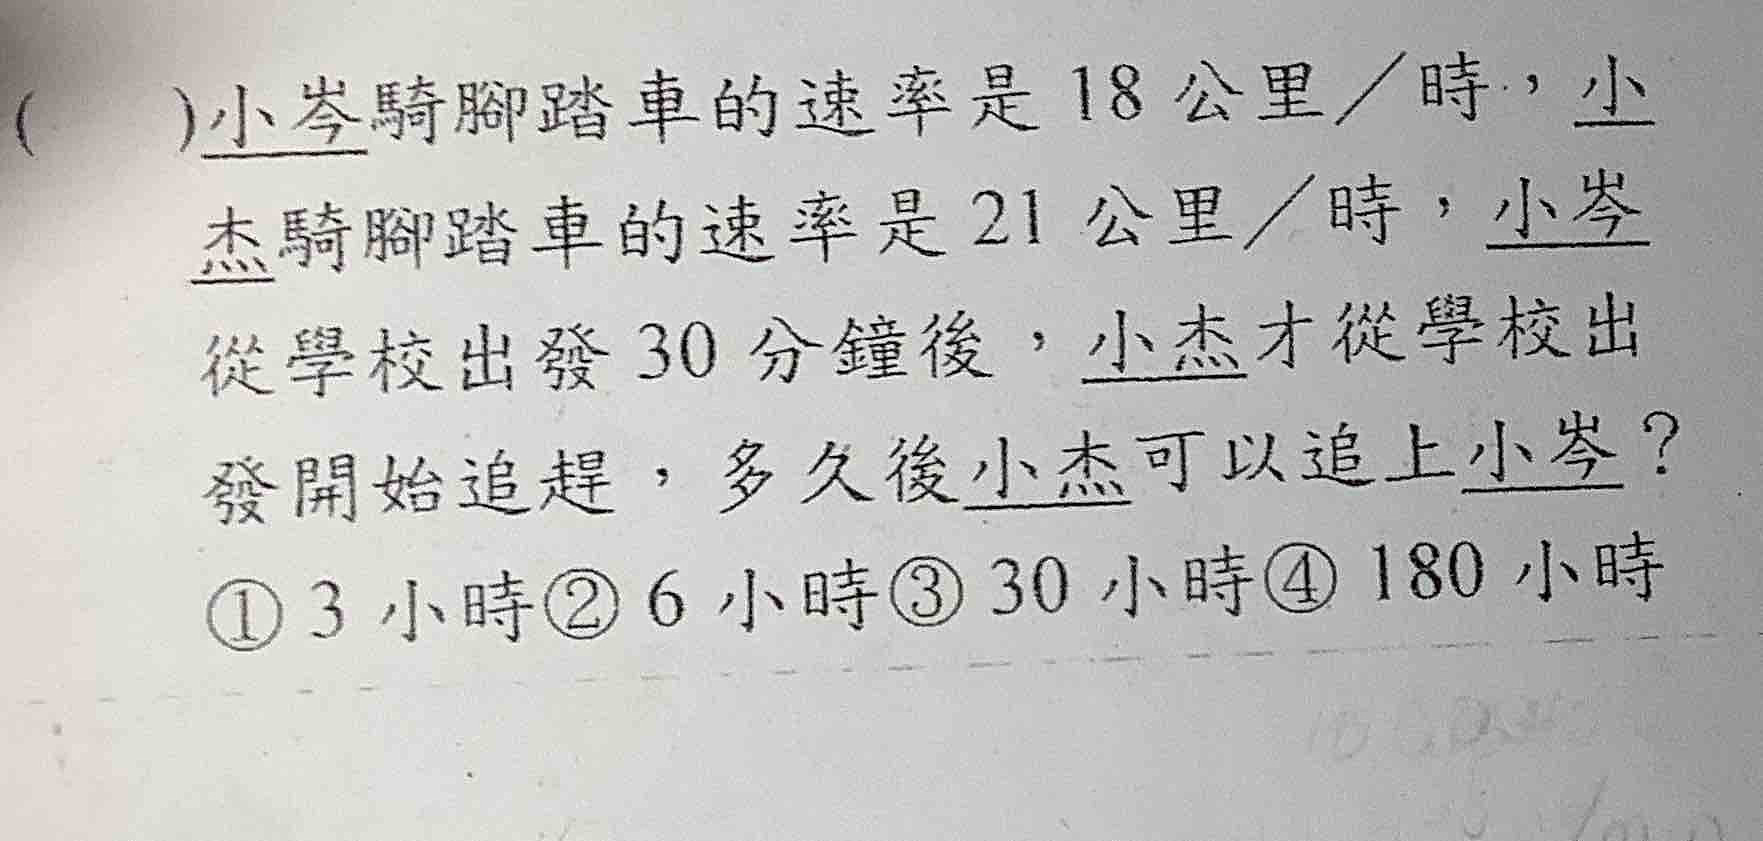 (　　)小岑騎腳踏車的速率是 18 公里／時，小
杰騎腳踏車的速率是 21 公里／時，小岑
從學校出發 30 分鐘後，小杰才從學校出
發開始追趕，多久後小杰可以追上小岑？
① 3 小時② 6 小時③ 30 小時④ 180 小時